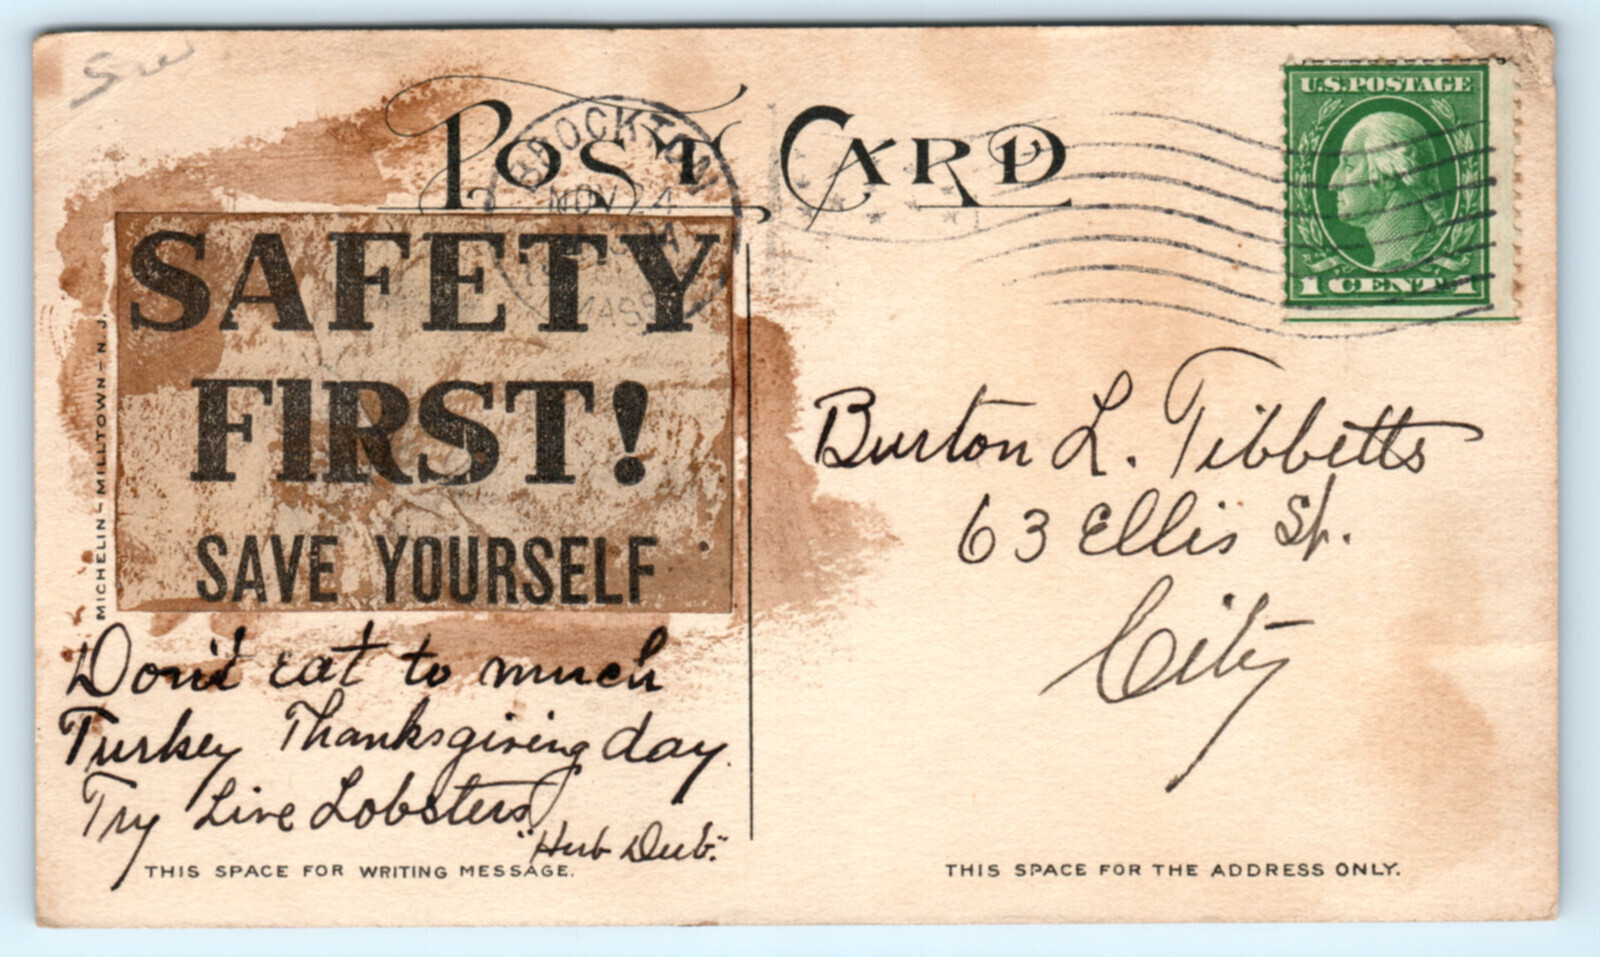 POST CARD
BROCKTON
NOV 24
MASS
U.S.POSTAGE
1 CENT 1
SAFETY
FIRST!
SAVE YOURSELF
MICHELIN-MILLTOWN-N.J.
Don't eat to much
Turkey Thanksgiving day.
Try Live Lobsters
"Herb Durb."
THIS SPACE FOR WRITING MESSAGE.
Burton L. Tibbetts
63 Ellis St.
City
THIS SPACE FOR THE ADDRESS ONLY.